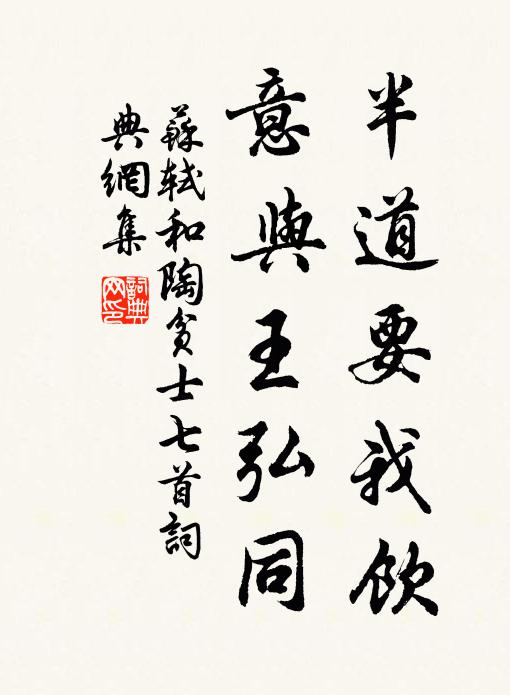 半道要我飲
意與王弘同
蘇軾和陶貧士七首詞
典網集
詞典网印